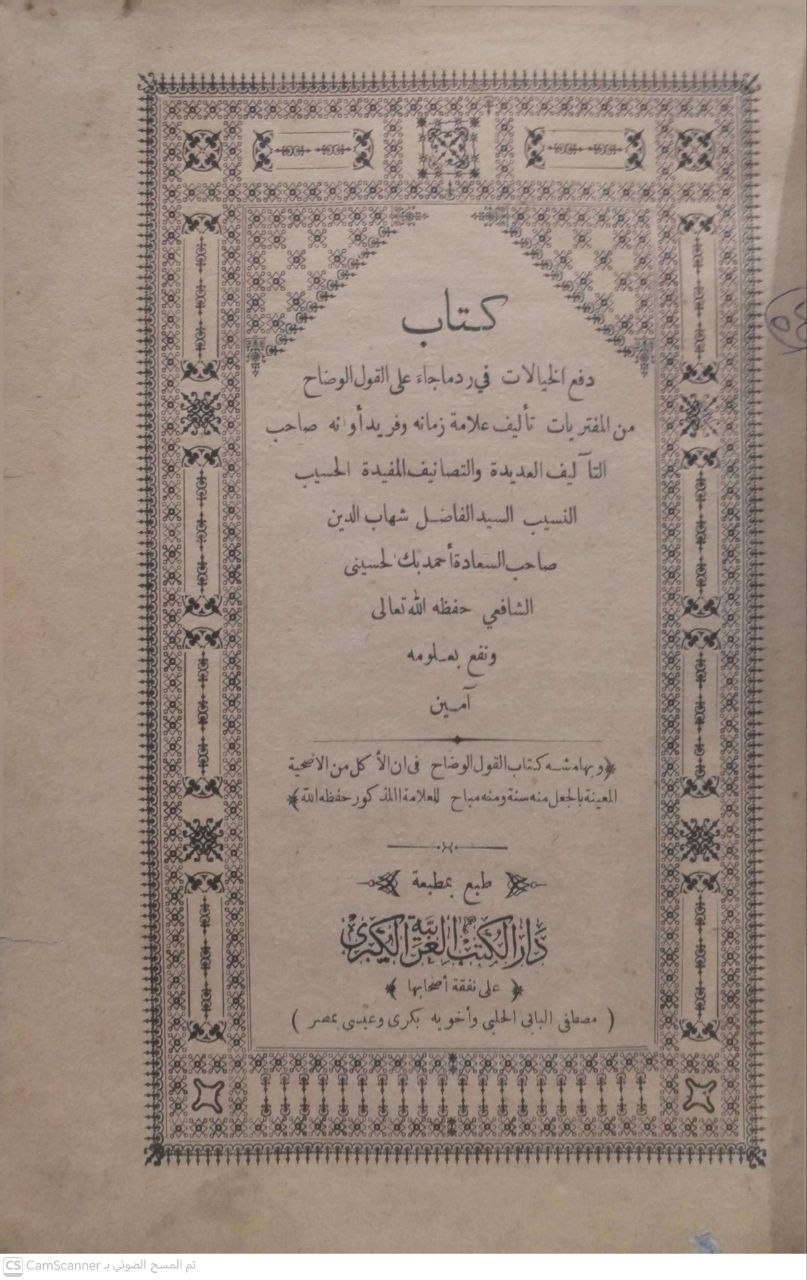 كتاب
دفع الخيالات في رد ما جاء على القول الوضاح
من المفتريات تأليف علامة زمانه وفريد أوانه صاحب
التآليف العديدة والتصانيف المفيدة الحسيب
النسيب السيد الفاضل شهاب الدين
صاحب السعادة أحمد بك الحسينى
الشافعي حفظه الله تعالى
ونفع بعلومه
آمين
﴿وبهامشه كتاب القول الوضاح فى ان الأكل من الاضحية
المعينة بالجعل منه سنة ومنه مباح للعلامة المذكور حفظه الله﴾
طبع بمطبعة
دار الكتب العربية الكبرى
﴿على نفقة أصحابها﴾
(مصطفى البابى الحلبى وأخويه بكرى وعيسى بمصر)
CS CamScanner تم المسح الضوئي بـ